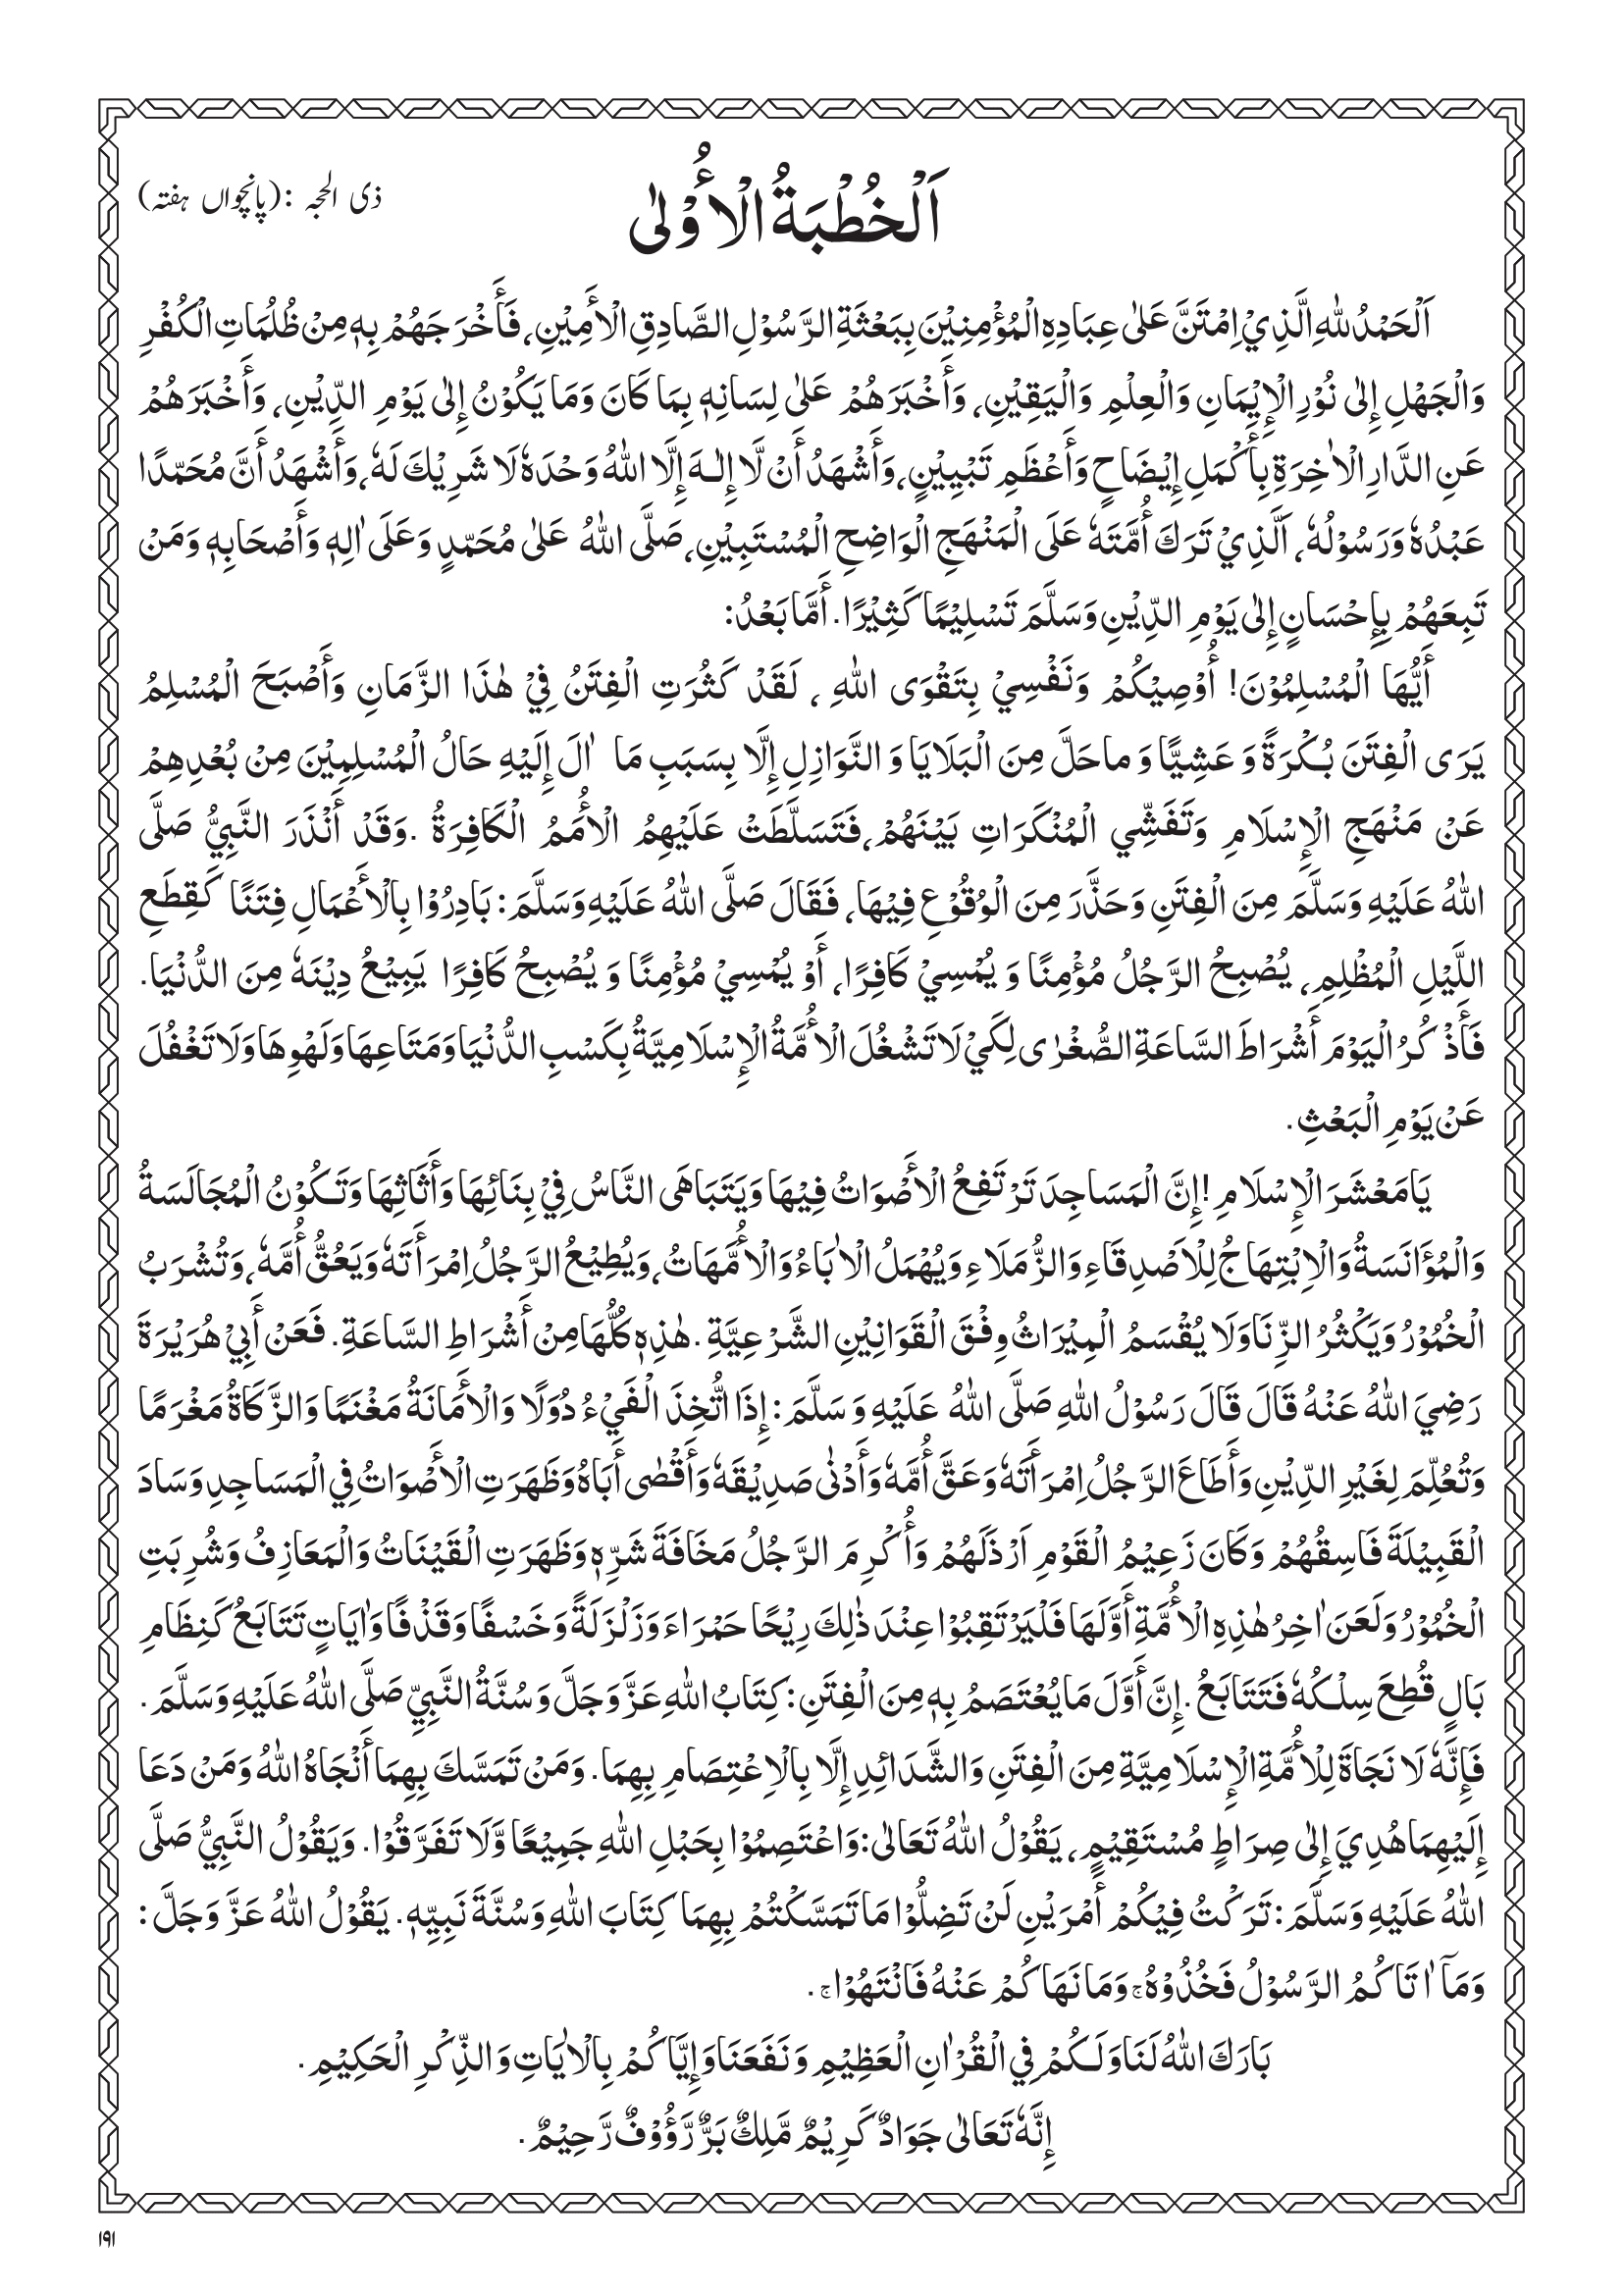 ذی الحجہ :(پانچواں ہفتہ)
اَلْخُطْبَةُ الْأُوْلٰى
اَلْحَمْدُ لِلّٰهِ الَّذِيْ اِمْتَنَّ عَلٰى عِبَادِهِ الْمُؤْمِنِيْنَ بِبَعْثَةِ الرَّسُوْلِ الصَّادِقِ الْأَمِيْنِ، فَأَخْرَجَهُمْ بِهٖ مِنْ ظُلُمَاتِ الْكُفْرِ
وَالْجَهْلِ إِلٰى نُوْرِ الْإِيْمَانِ وَالْعِلْمِ وَالْيَقِيْنِ، وَأَخْبَرَهُمْ عَلٰى لِسَانِهٖ بِمَا كَانَ وَمَا يَكُوْنُ إِلٰى يَوْمِ الدِّيْنِ، وَأَخْبَرَهُمْ
عَنِ الدَّارِ الْاٰخِرَةِ بِأَكْمَلِ إِيْضَاحٍ وَأَعْظَمِ تَبْيِيْنٍ، وَأَشْهَدُ أَنْ لَّا إِلٰهَ إِلَّا اللّٰهُ وَحْدَهٗ لَا شَرِيْكَ لَهٗ، وَأَشْهَدُ أَنَّ مُحَمَّدًا
عَبْدُهٗ وَرَسُوْلُهٗ، اَلَّذِيْ تَرَكَ أُمَّتَهٗ عَلَى الْمَنْهَجِ الْوَاضِحِ الْمُسْتَبِيْنِ، صَلَّى اللّٰهُ عَلٰى مُحَمَّدٍ وَعَلَى اٰلِهٖ وَأَصْحَابِهٖ وَمَنْ
تَبِعَهُمْ بِإِحْسَانٍ إِلٰى يَوْمِ الدِّيْنِ وَسَلَّمَ تَسْلِيْمًا كَثِيْرًا. أَمَّا بَعْدُ:
أَيُّهَا الْمُسْلِمُوْنَ! أُوْصِيْكُمْ وَنَفْسِيْ بِتَقْوَى اللّٰهِ ، لَقَدْ كَثُرَتِ الْفِتَنُ فِيْ هٰذَا الزَّمَانِ وَأَصْبَحَ الْمُسْلِمُ
يَرَى الْفِتَنَ بُكْرَةً وَ عَشِيًّا وَ ماحَلَّ مِنَ الْبَلَايَا وَ النَّوَازِلِ إِلَّا بِسَبَبِ مَا اٰلَ إِلَيْهِ حَالُ الْمُسْلِمِيْنَ مِنْ بُعْدِهِمْ
عَنْ مَنْهَجِ الْإِسْلَامِ وَتَفَشِّي الْمُنْكَرَاتِ بَيْنَهُمْ، فَتَسَلَّطَتْ عَلَيْهِمُ الْأُمَمُ الْكَافِرَةُ .وَقَدْ أَنْذَرَ النَّبِيُّ صَلَّى
اللّٰهُ عَلَيْهِ وَسَلَّمَ مِنَ الْفِتَنِ وَحَذَّرَ مِنَ الْوُقُوْعِ فِيْهَا، فَقَالَ صَلَّى اللّٰهُ عَلَيْهِ وَسَلَّمَ: بَادِرُوْا بِالْأَعْمَالِ فِتَنًا كَقِطَعِ
اللَّيْلِ الْمُظْلِمِ، يُصْبِحُ الرَّجُلُ مُؤْمِنًا وَ يُمْسِيْ كَافِرًا، أَوْ يُمْسِيْ مُؤْمِنًا وَ يُصْبِحُ كَافِرًا يَبِيْعُ دِيْنَهٗ مِنَ الدُّنْيَا.
فَأَذْكُرُ الْيَوْمَ أَشْرَاطَ السَّاعَةِ الصُّغْرٰى لِكَيْ لَا تَشْغُلَ الْأُمَّةُ الْإِسْلَامِيَّةُ بِكَسْبِ الدُّنْيَا وَمَتَاعِهَا وَلَهْوِهَا وَلَا تَغْفُلَ
عَنْ يَوْمِ الْبَعْثِ.
يَا مَعْشَرَ الْإِسْلَامِ !إِنَّ الْمَسَاجِدَ تَرْتَفِعُ الْأَصْوَاتُ فِيْهَا وَيَتَبَاهَى النَّاسُ فِيْ بِنَائِهَا وَأَثَاثِهَا وَتَكُوْنُ الْمُجَالَسَةُ
وَالْمُؤَانَسَةُ وَالْاِبْتِهَاجُ لِلْاَصْدِقَاءِ وَالزُّمَلَاءِ وَيُهْمَلُ الْاٰبَاءُ وَالْأُمَّهَاتُ، وَيُطِيْعُ الرَّجُلُ اِمْرَأَتَهٗ وَيَعُقُّ أُمَّهٗ، وَتُشْرَبُ
الْخُمُوْرُ وَيَكْثُرُ الزِّنَا وَلَا يُقْسَمُ الْمِيْرَاثُ وِفْقَ الْقَوَانِيْنِ الشَّرْعِيَّةِ .هٰذِهٖ كُلُّهَا مِنْ أَشْرَاطِ السَّاعَةِ. فَعَنْ أَبِيْ هُرَيْرَةَ
رَضِيَ اللّٰهُ عَنْهُ قَالَ قَالَ رَسُوْلُ اللّٰهِ صَلَّى اللّٰهُ عَلَيْهِ وَ سَلَّمَ: إِذَا اتُّخِذَ الْفَيْءُ دُوَلًا وَالْأَمَانَةُ مَغْنَمًا وَالزَّكَاةُ مَغْرَمًا
وَتُعُلِّمَ لِغَيْرِ الدِّيْنِ وَأَطَاعَ الرَّجُلُ اِمْرَأَتَهٗ وَعَقَّ أُمَّهٗ وَأَدْنٰى صَدِيْقَهٗ وَأَقْصٰى أَبَاهُ وَظَهَرَتِ الْأَصْوَاتُ فِي الْمَسَاجِدِ وَسَادَ
الْقَبِيْلَةَ فَاسِقُهُمْ وَكَانَ زَعِيْمُ الْقَوْمِ اَرْذَلَهُمْ وَأُكْرِمَ الرَّجُلُ مَخَافَةَ شَرِّهٖ وَظَهَرَتِ الْقَيْنَاتُ وَالْمَعَازِفُ وَشُرِبَتِ
الْخُمُوْرُ وَلَعَنَ اٰخِرُ هٰذِهِ الْأُمَّةِ أَوَّلَهَا فَلْيَرْتَقِبُوْا عِنْدَ ذٰلِكَ رِيْحًا حَمْرَاءَ وَزَلْزَلَةً وَخَسْفًا وَقَذْفًا وَاٰيَاتٍ تَتَابَعُ كَنِظَامِ
بَالٍ قُطِعَ سِلْكُهٗ فَتَتَابَعُ .إِنَّ أَوَّلَ مَا يُعْتَصَمُ بِهٖ مِنَ الْفِتَنِ: كِتَابُ اللّٰهِ عَزَّ وَجَلَّ وَ سُنَّةُ النَّبِيِّ صَلَّى اللّٰهُ عَلَيْهِ وَسَلَّمَ.
فَإِنَّهٗ لَا نَجَاةَ لِلْأُمَّةِ الْإِسْلَامِيَّةِ مِنَ الْفِتَنِ وَالشَّدَائِدِ إِلَّا بِالْاِعْتِصَامِ بِهِمَا. وَمَنْ تَمَسَّكَ بِهِمَا أَنْجَاهُ اللّٰهُ وَمَنْ دَعَا
إِلَيْهِمَا هُدِيَ إِلٰى صِرَاطٍ مُسْتَقِيْمٍ، يَقُوْلُ اللّٰهُ تَعَالٰى:وَاعْتَصِمُوْا بِحَبْلِ اللّٰهِ جَمِيْعًا وَّلَا تَفَرَّقُوْا. وَيَقُوْلُ النَّبِيُّ صَلَّى
اللّٰهُ عَلَيْهِ وَسَلَّمَ: تَرَكْتُ فِيْكُمْ أَمْرَيْنِ لَنْ تَضِلُّوْا مَا تَمَسَّكْتُمْ بِهِمَا كِتَابَ اللّٰهِ وَسُنَّةَ نَبِيِّهٖ. يَقُوْلُ اللّٰهُ عَزَّ وَجَلَّ:
وَمَآ اٰتَاكُمُ الرَّسُوْلُ فَخُذُوْهُ ۚ وَمَا نَهَاكُمْ عَنْهُ فَانْتَهُوْا ۚ .
بَارَكَ اللّٰهُ لَنَا وَلَكُمْ فِي الْقُرْاٰنِ الْعَظِيْمِ وَنَفَعَنَا وَإِيَّاكُمْ بِالْاٰيَاتِ وَالذِّكْرِ الْحَكِيْمِ.
إِنَّهٗ تَعَالٰى جَوَادٌ كَرِيْمٌ مَّلِكٌ بَرٌّ رَّؤُوْفٌ رَّحِيْمٌ.
١٩١